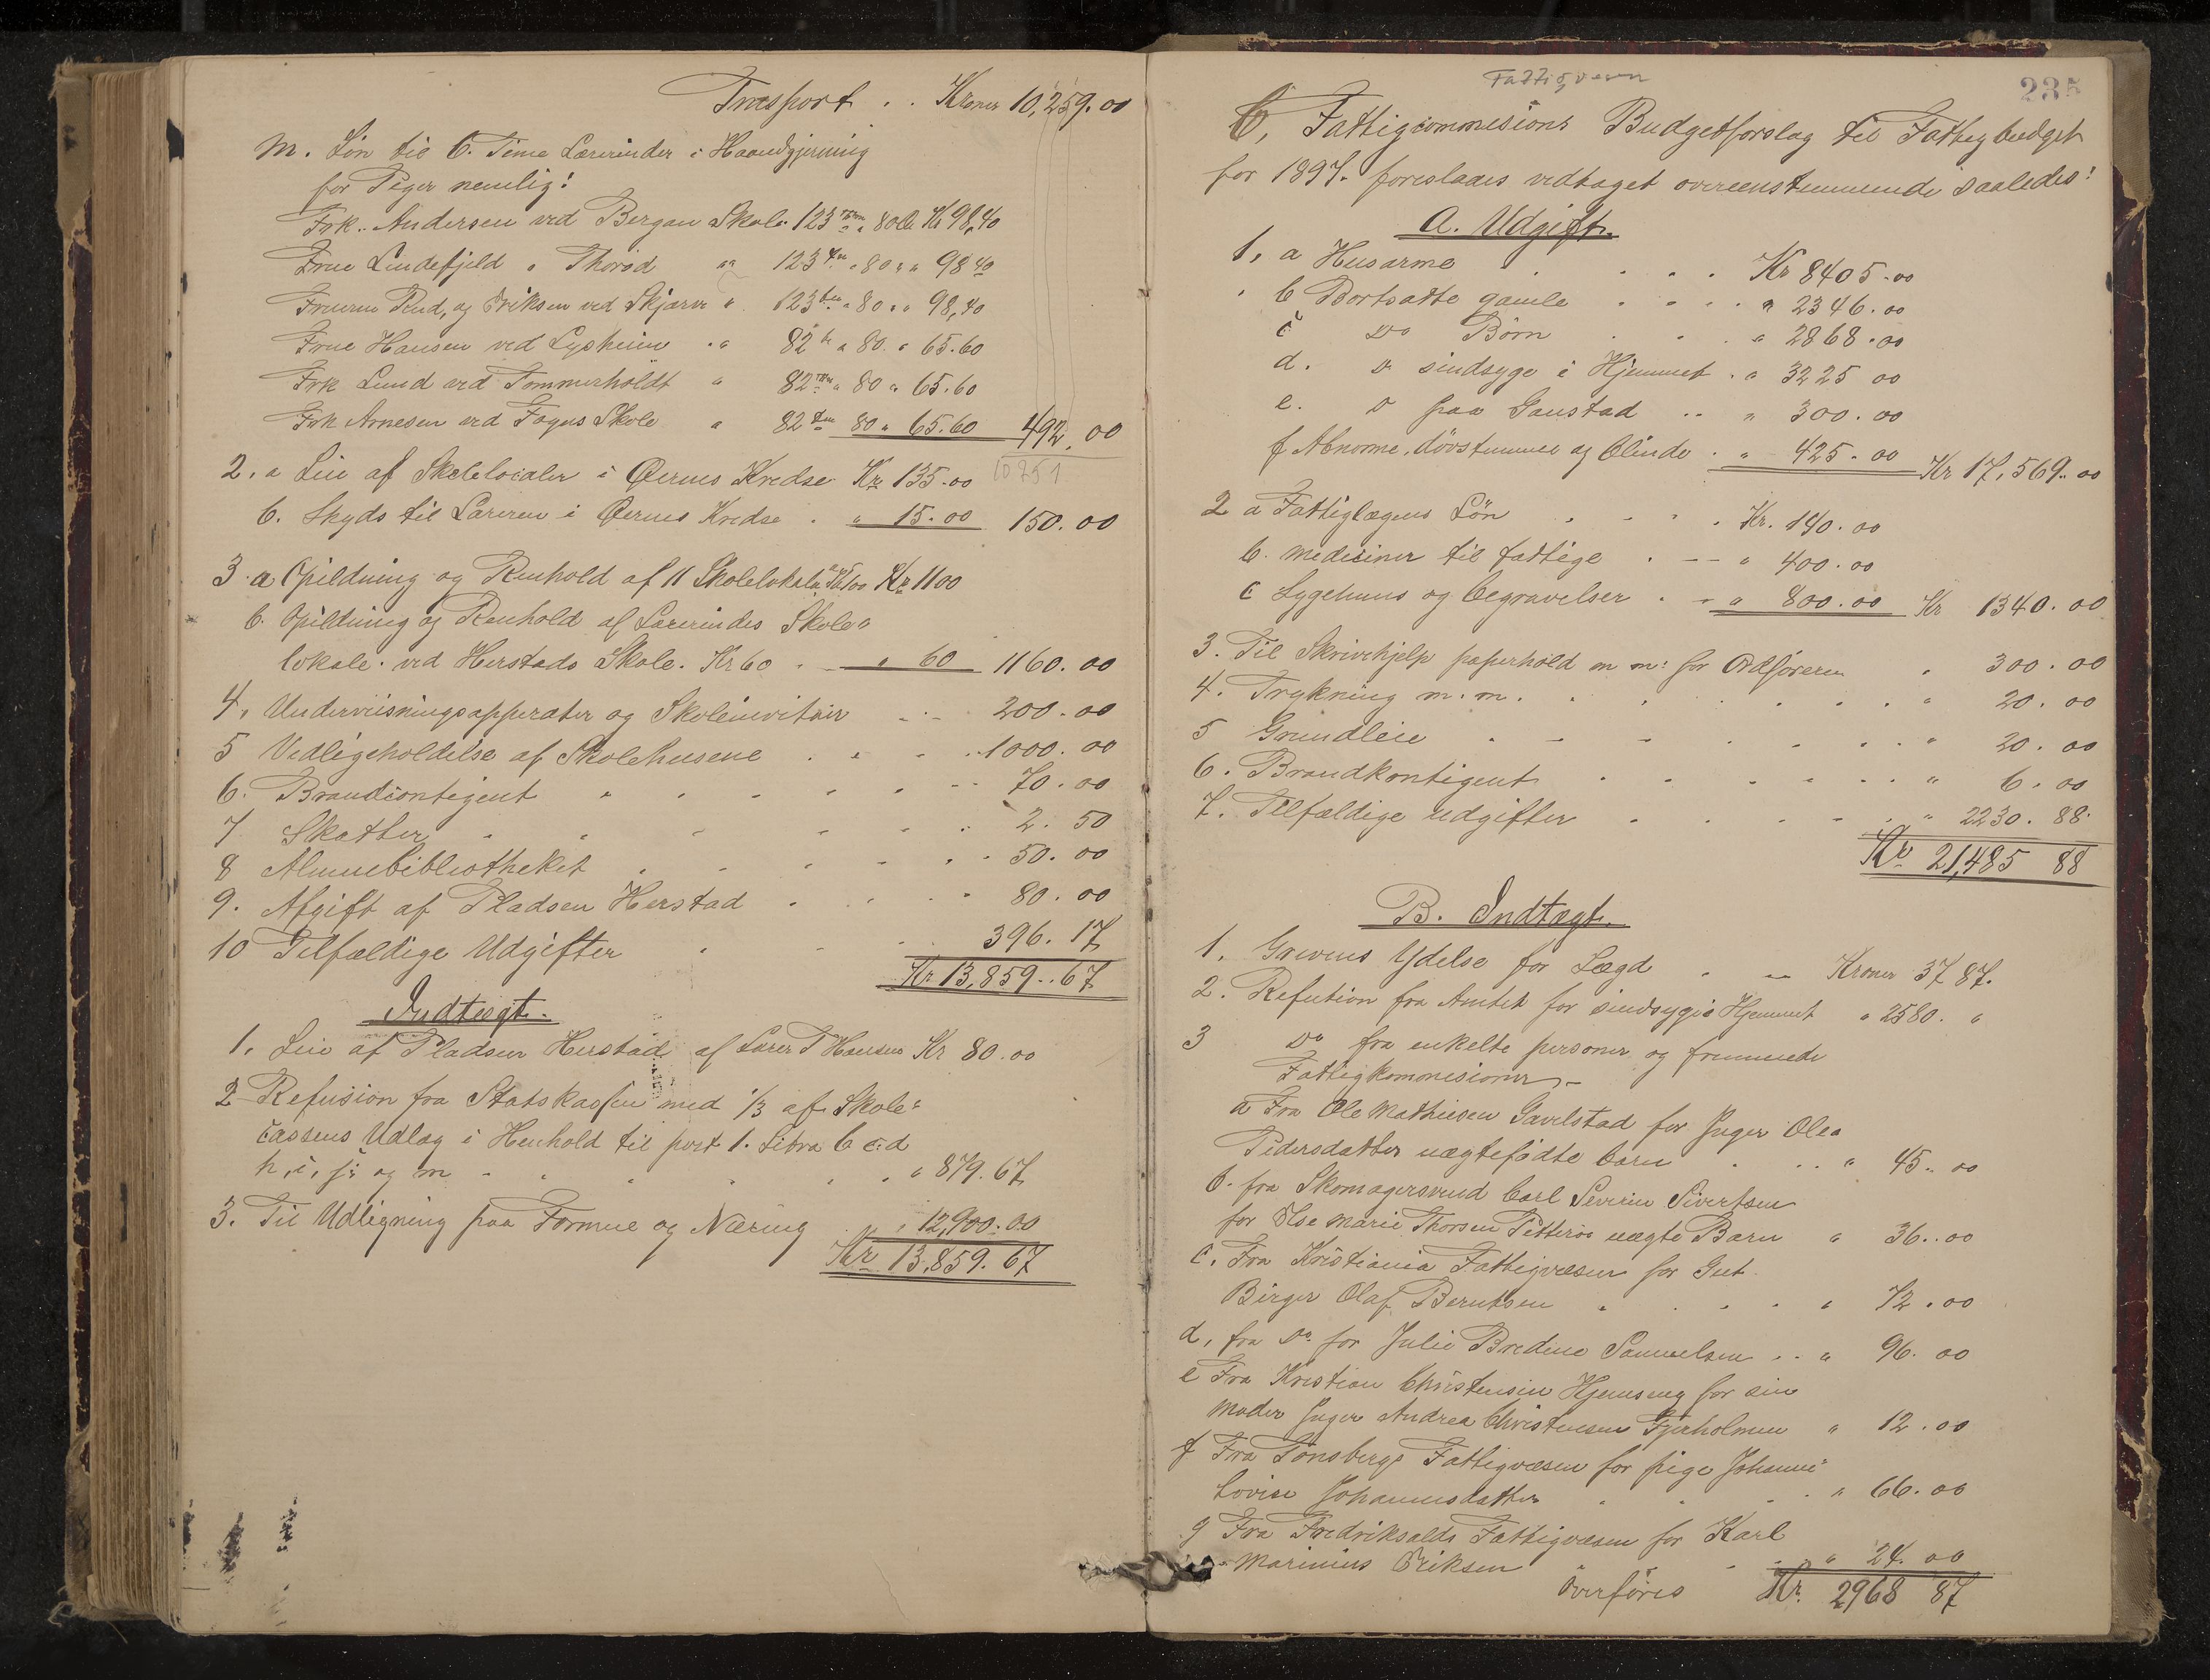 Transport . . Kroner 10,259.00
m. Løn til 6. Time Lærerinder i Haandgjerning
for Piger nemlig:
Frk. Andersen ved Bergan Skole 123 Tim a 80 Øre Kr 98,40
Frue Lindefjeld " Thorød " 123 Tim " 80 " " 98 40
Fruerne Rud, og Eriksen ved Skjærve " 123 Tim " 80 " " 98,40
Frue Hansen ved Lysheim " " 82 Ti " 80 " 65.60
Frk Lund ved Tommerholdt " 82 Tim " 80 " 65.60
Frk Arnesen ved Fogns Skole " 82 Tim 80 " 65.60 492.00
10751
2. a Leie af Skolelocaler i Øernes Kredse Kr 135.00
b. Skyds til Læreren i Øernes Kredse . " 15.00 150.00
3 a Opildning og Renhold af 11 Skolelokaler a Kr 100 Kr 1100
b. Opildning og Renhold af Lærerindes Skole"
lokale ved Herstads Skole. Kr 60 . " 60 1160.00
4. Underviisningsapperater og Skoleinvitair 200.00
5 Vedligeholdelse af Skolehusene 1000.00
6. Brandcontigent 70.00
7 Skatter 2.50
8 Almuebibliotheket 50.00
9. Afgift af Pladsen Herstad 80.00
10 Tilfældige Udgifter 396.17
Kr 13,859..67
Indtægt.
1. Leie af Pladsen Herstad af Lærer T Hansen Kr 80.00
2 Refusion fra Statskassen med 1/3 af Skole"
cassens Udlæg i Henhold til post 1. Litra b c. d
h, i, j, og m " 879.67
3. Til Udligning paa Formue og Næring " 12,900.00
Kr 13,859.67
Fattigvesen
235
C, Fattigcommesions Budgetforslag til Fattigbudget
for 1897. foreslaaes vedtaget overeenstemmende saaledes:
A. Udgift.
1. a Husarme Kr 8405.00
" b Bortsatte gamle " 2346.00
c Do Børn " 2868.00
d. D sindsyge i Hjemmet " 3225 00
e. D paa Gaustad " 300.00
f Abnorme, døvstumme og blinde " 425.00 Kr 17,569.00
2 a Fattiglægens Løn Kr. 140.00
b. medeciner til fattige " 400.00
c Sygehuus og begravelser " 800.00 Kr 1340.00
3. Til Skrivehjelp paperhold m m: for Ordføreren " 300.00
4. Trykning m.m. " 20.00
5 Grundleie " 20.00
6. Brandkontigent " 6.00
7. Tilfældige udgifter " 2230.88
Kr 21,485 88
B. Indtægt.
1. Gaarens Ydelse for Lægd Kroner 37 87.
2. Refution fra Amtet for sindsyge i Hjemmet " 2580. "
3 Do fra enkelte personer og fremmede
Fattigkommesioner
a Fra Ole Mathiesen Gavelstad for Inger Olea
Pedersdatter uægtefødte barn " 45.00
b. fra Skomagersvend Carl Severin Sivertsen
for Else Marie Thorsen Petterøe uægte Barn " 36.00
c. Fra Kristiania Fattigvæsen for Gut
Birger Olaf Berntsen " 72.00
d, fra Do for Julie Bredine Samuelsen " 96.00
e Fra Kristian Christensen Hjemseng for sin
moder Inger Andrea Christensen Fjærholmen " 12.00
f Fra Tønsbergs Fattigvæsen for pige Johanne
Lovise Johannesdatter " 66.00
g Fra Fredrikshalds Fattigvæsen for Karl
Marinius Eriksen " 24.00
Overføres Kr. 2968 87